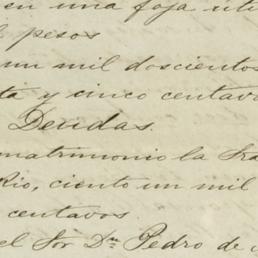 en una foja útil
pesos
un mil doscientos
ta y cinco centavos
Deudas.
matrimonio la Sra
Rio, ciento un mil
centavos.
el Sor Dn Pedro de